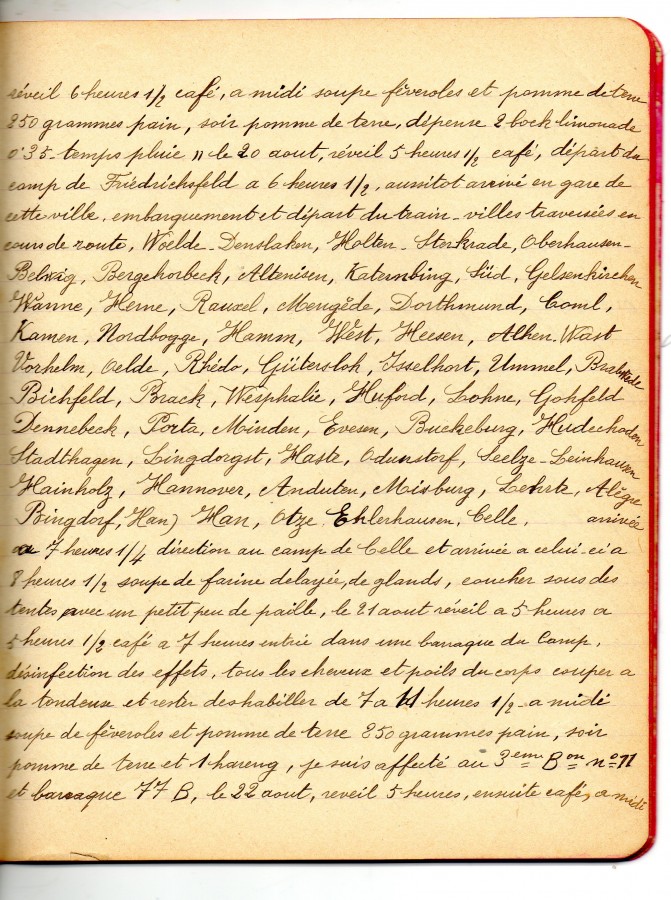 réveil 6 heures 1/2 café, a midi soupe féveroles et pomme de terre
250 grammes pain, soir pomme de terre, dépense 2 bock limonade
0'35 - temps pluie " le 20 aout, réveil 5 heures 1/2 café, départ du
camp de Friedrichsfeld a 6 heures 1/2, aussitot arrivé en gare de
cette ville, embarquement et départ du train - villes traversées en
cours de route, Woelde - Denslaken, Holten - Sterkrade, Oberhausen -
Bergehorbeck, Altenisen, Katernbing, Süd, Gelsenkirchen
Wanne, Herne, Rauxel, Mengède, Dorthmund, Coml,
Kamen, Nordbogge, Hamm, West, Heesen, Alhen. Wast
Vorhelm, Oelde, Rhédo, Gütersloh, Isselhort, Ummel,
Bichfeld, Brack, Wesphalie, Huford, Lohne, Gohfeld
Dennebeck, Porta, Minden, Evesen, Buckeburg,
Stadthagen, Lingdorgst, Haste, Odunstorf, Seelze - Leinhausen
Hainholz, Hannover, Anduten, Misburg, Lehrte, Alègre
Bingdorf, Han) Han, Otze, Ehlerhausen, Celle, arrivée
a 7 heures 1/4 direction au camp de Celle et arrivée a celui-ci a
8 heures 1/2 soupe de farine delayée, de glands, coucher sous des
tentes avec un petit peu de paille, le 21 aout réveil a 5 heures a
5 heures 1/2 café a 7 heures entrée dans une barraque du Camp,
désinfection des effets, tous les cheveux et poils du corps couper a
la tondeuse et rester deshabiller de 7 a 11 heures 1/2 - a midi
soupe de féveroles et pomme de terre 250 grammes pain, soir
pomme de terre et 1 hareng, je suis affecté au 3eme Bon no 11
et barraque 77 B, le 22 aout, reveil 5 heures, ensuite café, a midi